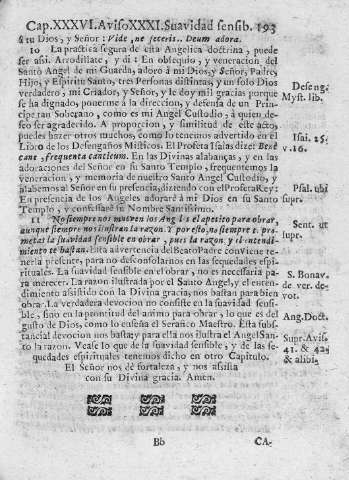 Cap.XXXVI.AvisoXXXI.Suavidad sensib. 193
â tu Dios, y Señor: Vide, ne feceris.. Deum adora.
10 La practica segura de esta Angelica doctrina, puede
ser asi. Arrodillate, y di: En obsequio, y veneracion del
Santo Angel de mi Guarda, adoro â mi Dios, y Señor, Padre,
Hijo, y Espiritu Santo, tres Personas distintas, y un solo Dios
verdadero, mi Criador, y Señor, y le doy mil gracias porque
se ha dignado, ponerme â la direccion, y defensa de un Prin-
cipe tan Soberano, como es mi Angel Custodio, â quien de-
seo ser agradecido. A proporcion, y similitud de este acto,
puedes hazer otros muchos, como lo tenemos advertido en el
Libro de los Desengaños Misticos. El Profeta Isaias dize: Benè
cane, frequenta canticum. En las Divinas alabanças, y en las
adoraciones del Señor en su Santo Templo, frequentemos la
veneracion, y memoria de nuestro Santo Angel Custodio, y
alabemos al Señor en su presencia, diziendo con el Profeta Rey:
En presencia de los Angeles adorarè â mi Dios en su Santo
Templo, y confessarè su Nombre Santissimo.
Deseng.
Myst. lib.
Isai. 25.
v. 16.
Psal. ubi
supr.
11 No siempre nos mueven los Angeles el apetito para obrar,
aunque siempre nos ilustran la razon. Y por esto, no siempre se pro-
metas la suavidad sensible en obrar, pues la razon y el entendi-
miento te bastan. Esta advertencia del Beato Padre conviene te-
nerla presente, para no desconsolarnos en las sequedades espi-
rituales. La suavidad sensible en el obrar, no es necessaria pa-
ra merecer. La razon ilustrada por el Santo Angel, y el enten-
dimiento assistido con la Divina gracia, nos bastan para bien
obrar. La verdadera devocion no consiste en la suavidad sensi-
ble, sino en la prontitud del animo para obrar, lo que es del
gusto de Dios, como lo enseña el Serafico Maestro. Esta subs-
tancial devocion nos basta; y para ella nos ilustra el Angel San-
to la razon. Vease lo que de la suavidad sensible, y de las se-
quedades espirituales tenemos dicho en otro Capitulo.
El Señor nos dè fortaleza, y nos assista
con su Divina gracia. Amen.
Sent. ut
supr.
S. Bonav.
de ver. de-
vot.
Ang. Doct.
Supr. Avis.
41. & 42.
& alibi.
Bb
CA-